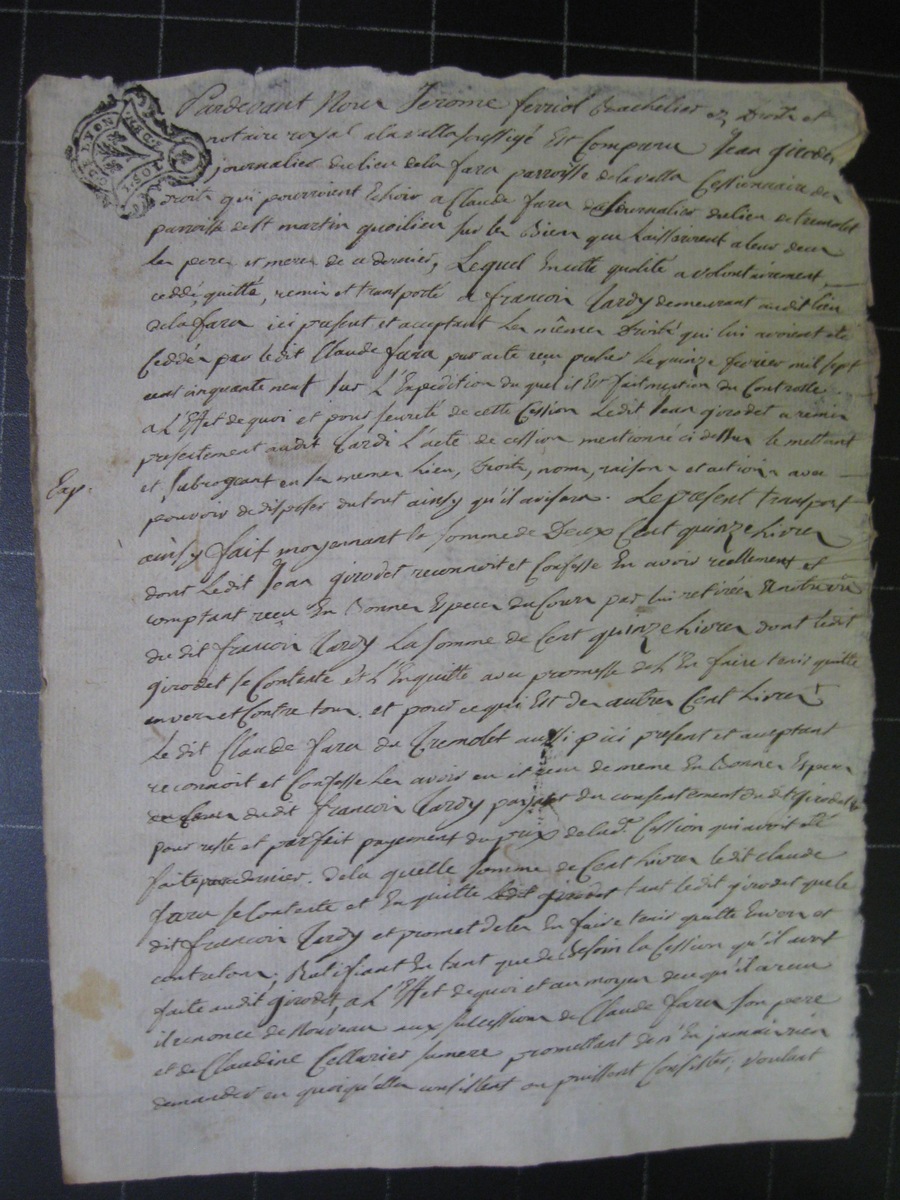 Pardevant Nous Jerome ferriol Bachelier ez Droits et
notaire royal a lavalla soussigé Est Comparu Jean girodet
journalier du lieu de la fara parroisse de lavalla Cessionnaire des
droits qui pourroient Echoir a Claude fara journalier du lieu de tremolet
parroisse de St martin quoilieu sur les Biens que Laisseront a leur deces
les pere et mere de ce dernier, Lequel En cette qualité a volontairement
ceddé, quitté, remis et transporté a françois Tardy demeurant audit lieu
de la fara ici present et acceptant Les mêmes Droits qui lui avoient été
Ceddés par ledit Claude fara par acte reçu Le quinze fevrier mil sept
cent cinquante neuf sur L'Expedition du quel il Est fait mention du Controlle.
a L'Effet de quoi et pour seureté de cette Cession Ledit Jean girodet a remis
presentement audit Tardi L'acte de cession mentionné ci dessus le mettant
et subrogeant en ses memes Lieu, Droits, noms, raisons et actions avec
Exp.
pouvoir de disposer du tout ainsy qu'il avisera. Le present transport
ainsy fait moyennant la somme de Deux Cent quinze Livres
dont Ledit Jean girodet reconnoit et Confesse En avoir reellement et
comptant reçu En Bonnes Especes du Cours par lui retirées
dudit françois Tardy La somme de Cent quinze Livres dont ledit
girodet se Contente et L'En quitte avec promesse de L'En faire tenir quitte
envers et Contre tous. et pour ce qui Est des autres Cent Livres
Le dit Claude fara du Tremolet aussi ici present et acceptant
reconnoit et Confesse Les avoir eu et reçu de meme En Bonnes Especes
du Cours dudit françois Tardy payant du consentement dudit girodet
pour reste et parfait payement du prix de lad. Cession qui avoit été
faite par ce dernier. de la quelle somme de Cent Livres ledit claude
fara se Contente et En quitte tant ledit girodet que le
dit françois Tardy et promet de les En faire tenir quitte Envers et
contre tous; Ratifiant En tant que de Besoin la Cession qu'il avoit
faite audit girodet, a L'Effet de quoi et au moyen de ce qu'il a reçu
il renonce de Nouveau aux successions de Claude fara son pere
et de Claudine Cellarier sa mere promettant de n'En jamais rien
demander en quoi qu'elles consistent ou puissent Consister, voulant